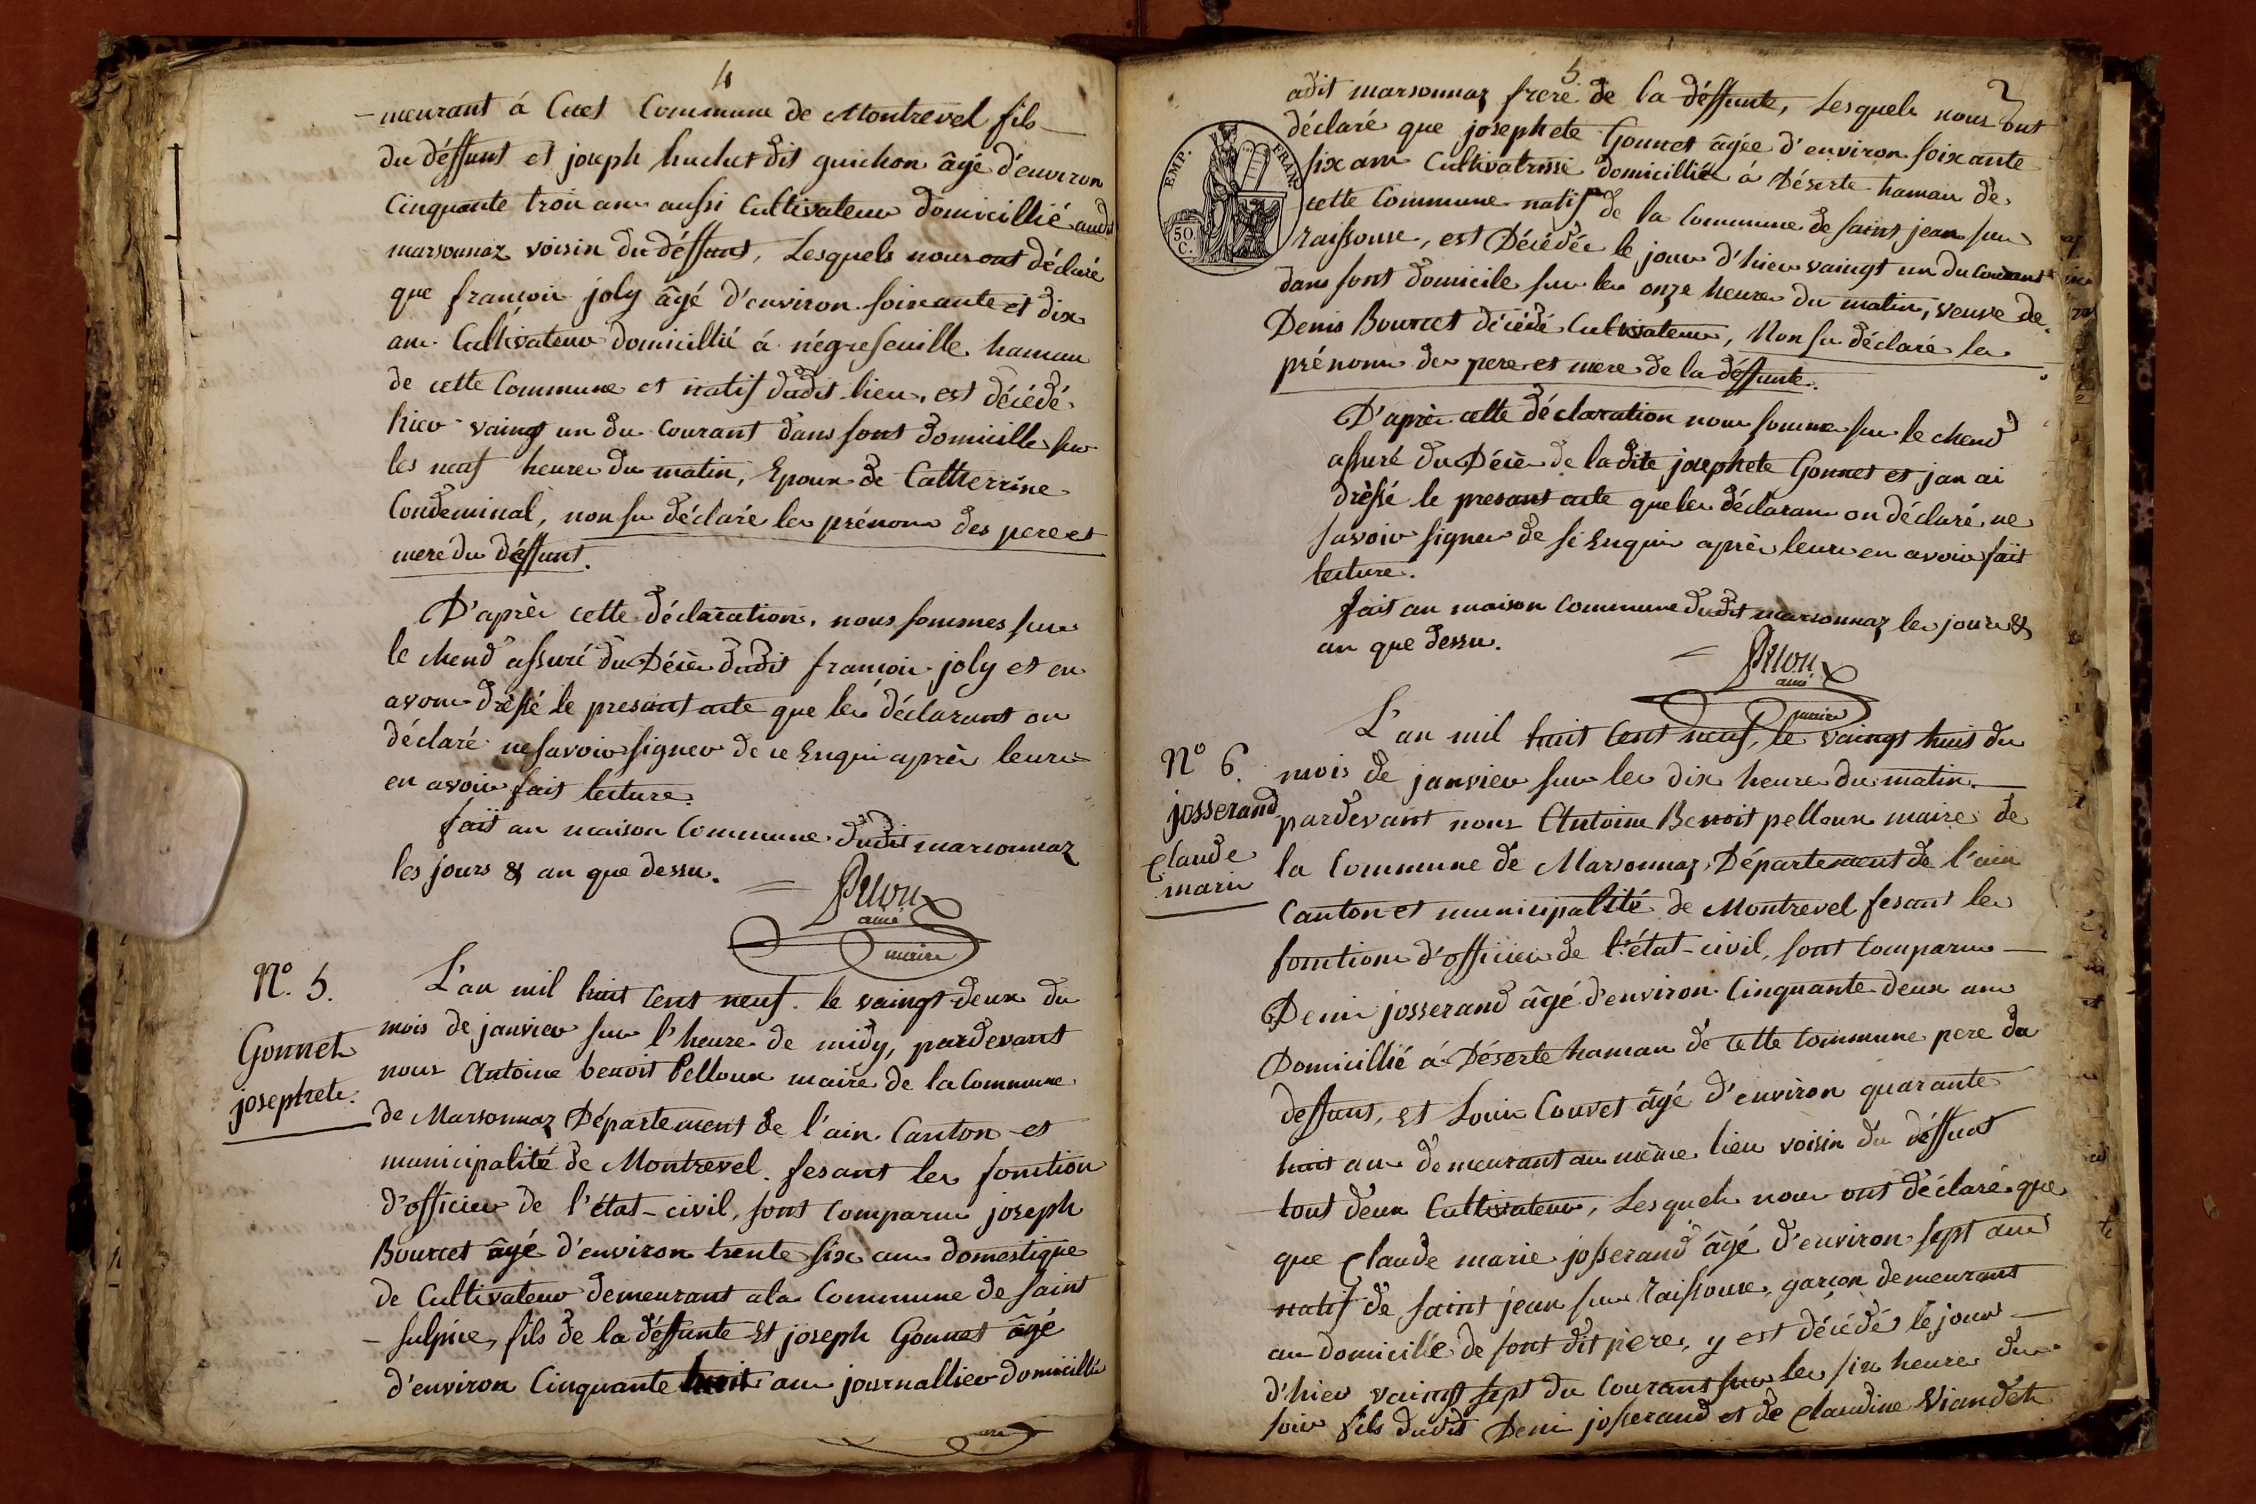 4
-meurant á Cuet Commune de Montrevel fils
du déffunt et joseph huchet dit guichon âgé d'environ
Cinquante trois ans aussi Cultivateur domicillié audit
marsonnaz voisin du déffunt, Lesquels nous ont déclaré
que françois joly âgé d'environ soixante et dix
ans Cultivateur domicillié á négrefeuille hamau
de cette Commune et natif dudit lieu, est décédé
hier vaingt un du courant dans sont domicille sur
les neuf heures du matin, Epoux de Catherrine
Condeminal, non su déclaré les prénoms des pere et
mere du déffunt.
D'après cette déclaration, nous sommes sur
le chend assuré du Décès dudit françois joly et en
avons drèssé le presant acte que les déclarant on
déclaré ne savoir signer de ce Enquis après leurs
en avoir fait lecture.
fait au maison Commune dudit marsonnaz
les jours & an que dessu.
ainé
maire
N.º 5.
Gonnet
josephete.
L'an mil huit Cent neuf. le vaingt deux du
mois de janvier sur l'heure de midy, pardevant
nous Antoine benoit Pelloux maire de la Commune
de Marsonnaz Département de l'ain. Canton et
municipalité de Montrevel. fesant les fonction
d'officier de l'état-civil, sont Comparus joseph
Bourcet âgé d'environ trente six ans domestique
de Cultivateur demeurant a la Commune de saint
-sulpice, fils de la déffunte Et joseph Gonnet âgé
d'environ Cinquante huit ans journallier domicillié
5
adit marsonnaz frere de la déffunte, Lesquels nous ont
déclaré que josephete Gonnet âgée d'environ soixante
six ans Cultivatrisse domicilliée á Déserte hamau de
cette Commune natif de la Commune de saint jean sur
raissouse, est Décédée le jour d'hier vaingt un du Courant
dans sont domicile sur les onze heures du matin, veuve de
Denis Bourcet décédé Cultivateur, Non su déclaré les
prénoms des pere et mere de la déffunte.
EMP. FRAN.
50 C.
D'après cette déclaration nous sommes sur le chend
assuré du Décès de la dite josephete Gonnet et jan ai
drèssé le presant acte que les déclarans on déclaré ne
savoir signer de si Enquis après leurs en avoir fait
lecture.
fait au maison Commune dudit marsonnaz les jours &
an que dessu.
ainé
maire
N.º 6.
josserand
Claude
marie
L'an mil huit Cent neuf, le vaingt huit du
mois de janvier sur les dix heures du matin
pardevant nous Antoine Benoit pelloux maire de
la Commune de Marsonnaz Département de l'ain
Canton et municipalité de Montrevel fesant les
fonctions d'officier de l'état-civil, sont Comparus
Denis josserand âgé d'environ Cinquante deux ans
Domicillié á Déserte hamau de cette Commune pere du
deffunt, et Louis Couvet âgé d'environ quarante
huit ans demeurant au même lieu voisin du déffunt
tout deux Cultivateur, Lesquels nous ont déclaré que
que Claude marie josserand âgé d'environ sept ans
natif de saint jean sur Raissouse, garçon demeurant
au domicile de sont dit pere, y est décédé le jour
d'hier vaingt sept du Courant sur les six heures du
soir fils dudit Denis josserand et de Claudine Viandet